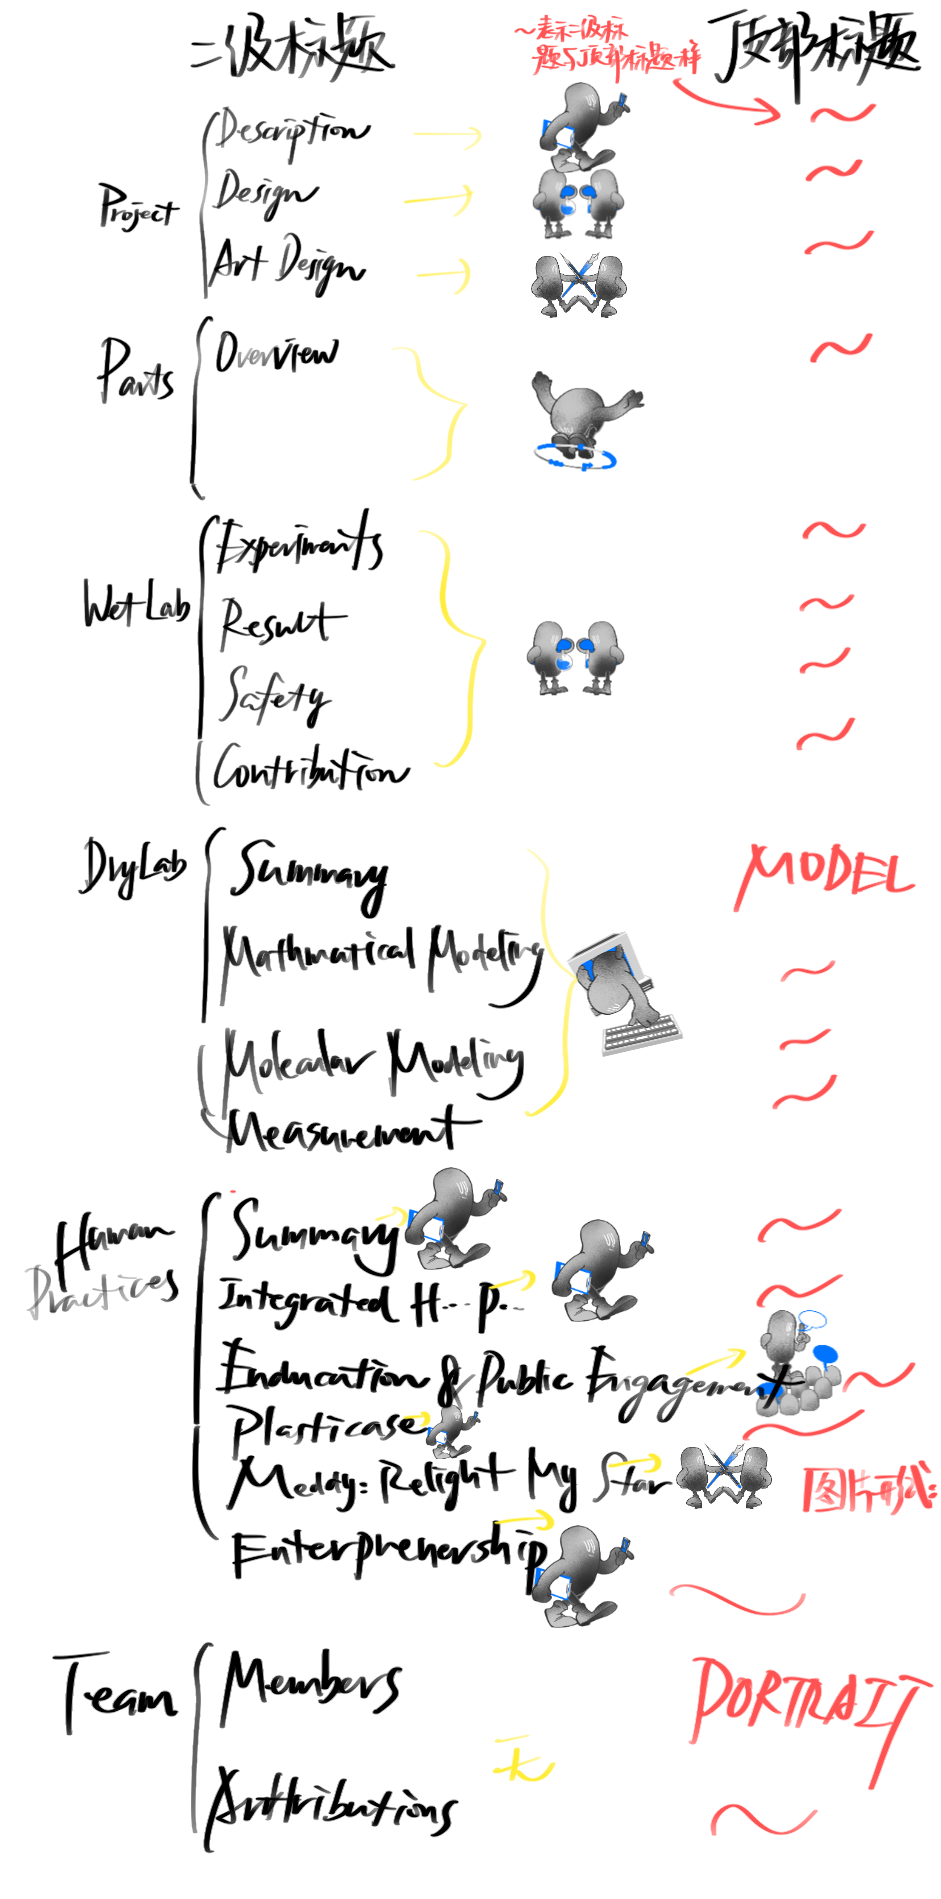 二级标题
~表示二级标
题与顶部标题一样
顶部标题
Project
Description
~
Design
~
Art Design
~
Parts
Overview
~
Wet Lab
Experiments
~
Result
~
Safety
~
Contribution
~
Dry Lab
Summary
MODEL
Mathmatical Modeling
~
Molecular Modeling
~
Measurement
~
Human
Practices
Summary
~
Integrated H... P...
~
Enducation & Public Engagement
~
Plasticase
~
Meddy: Relight My Star
图片形式:
Enterprenership
~
Team
Members
PORTRAIT
无
Arttributions
~